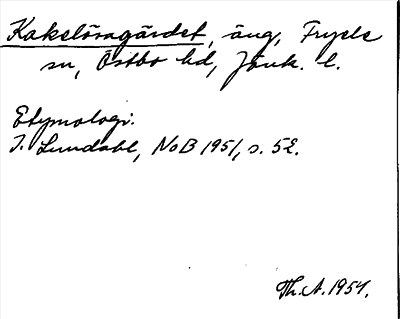 Kakelöragärdet, äng, Fryele
sn, Östbo hd, Jönk. l.
Etymologi.
I. Lundahl, NoB 1951, s. 52.
Th. A. 1954.